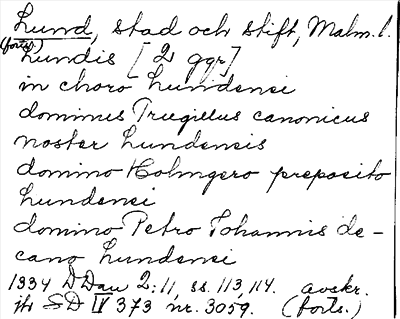 Lund, stad och stift, Malm. l.
(forts.)
Lundis [2 ggr]
in choro Lundensi
dominus Trugillus canonicus
noster Lundensis
domino Holmgero preposito
Lundensi
domino Petro Johannis de-
cano Lundensi
1334 DDan 2:11, ss. 113, 114. avskr.
jfr SD IV 373 nr. 3059. (forts.)